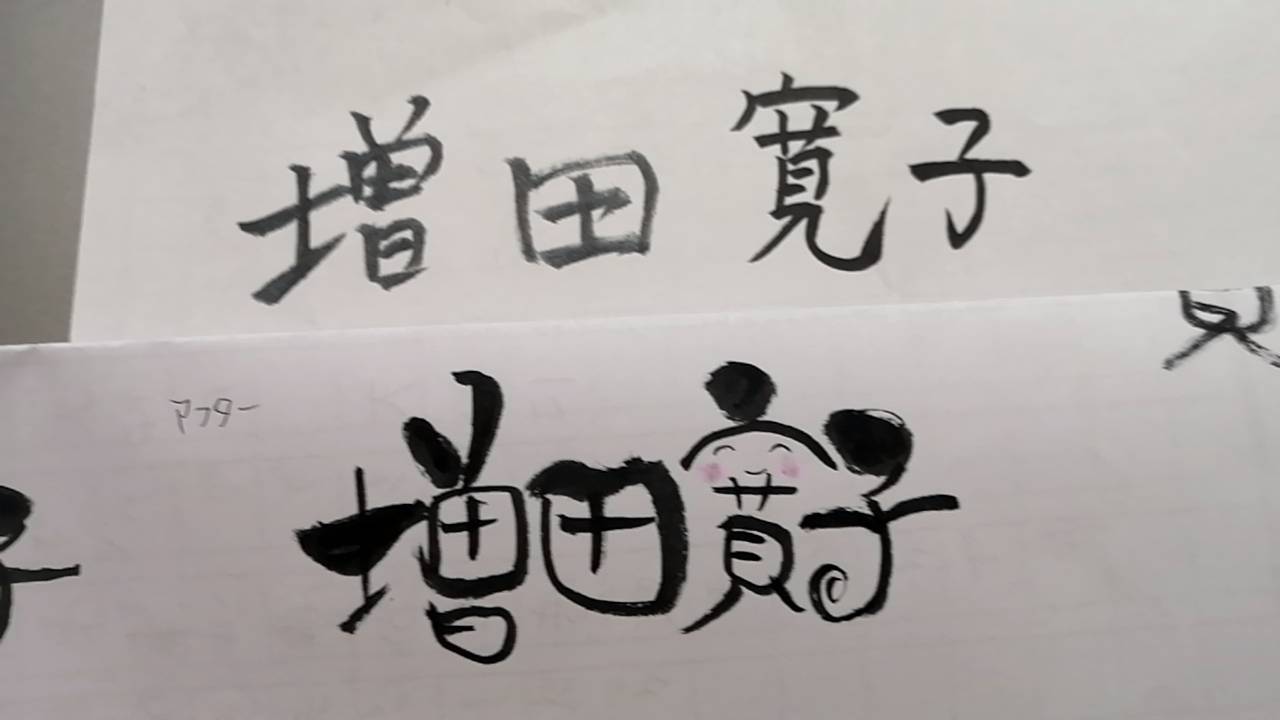 増田寛子
アフター
増田寛子